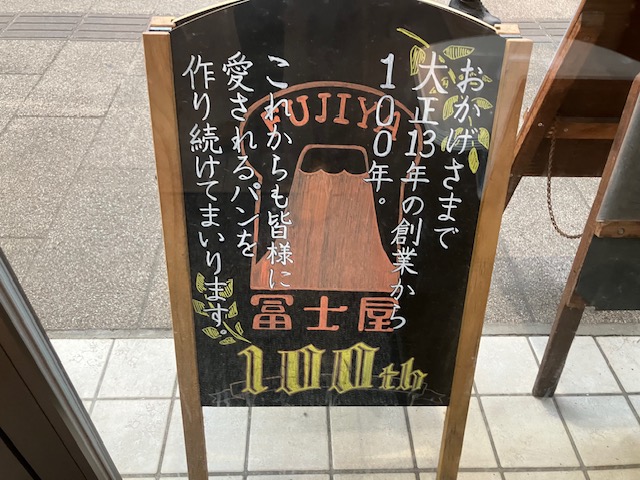 おかげさまで
大正13年の創業から
100年。
これからも皆様に
愛されるパンを
作り続けてまいります。
FUJIYA
冨士屋
100th